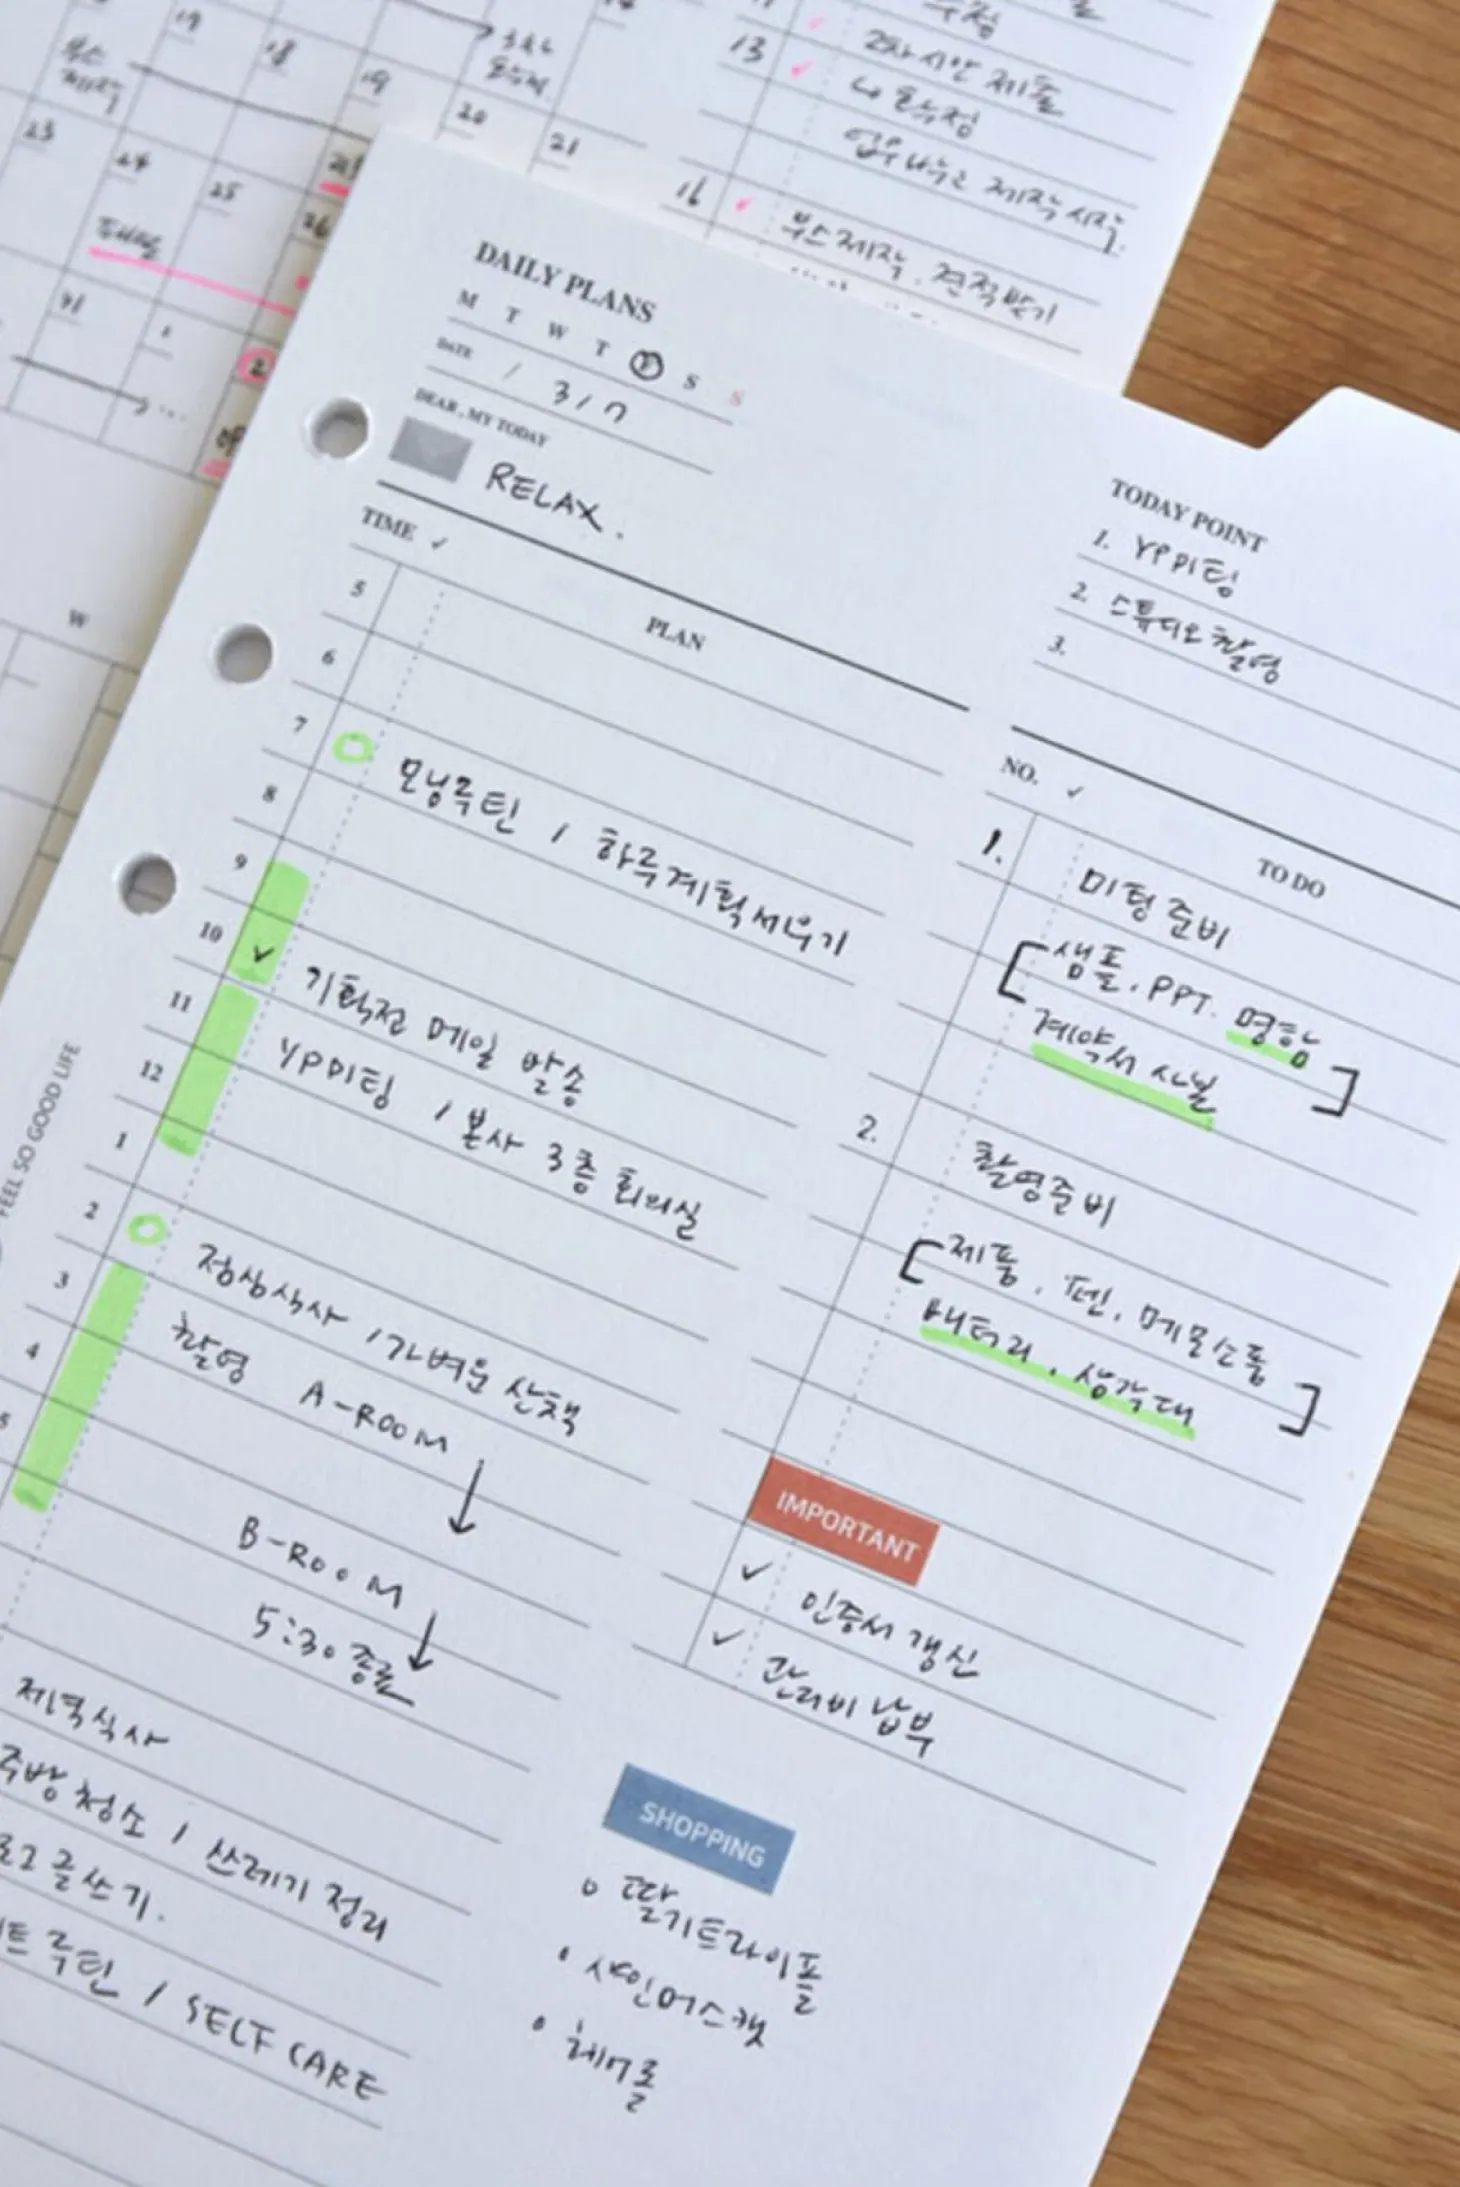 17
18
19
20
21
23
24
25
26
31
1
2
W
13
2차시안 제출
↳ 요수정
업무나누고 제작 시작
16
부스제작, 견적받기
DAILY PLANS
M T W T F S S
DATE / 3/7
DEAR, MY TODAY
RELAX.
TODAY POINT
1. YP미팅
2. 스튜디오 촬영
3.
TIME ✓
PLAN
5
6
7
모닝루틴 / 하루계획세우기
8
9
10 ✓ 기획전 메일 발송
11 YP미팅 / 본사 3층 회의실
12
1
2 점심식사 / 가벼운 산책
3 촬영 A-ROOM
↓
4
B-ROOM
↓
5
5:30 종료
저녁식사
주방 청소 / 쓰레기 정리
글쓰기.
루틴 / SELF CARE
NO. ✓
TO DO
1. 미팅준비
[샘플, PPT, 명함
계약서 사본]
2. 촬영준비
[제품, 펜, 메모소품
배터리, 삼각대]
IMPORTANT
✓ 인증서 갱신
✓ 관리비 납부
SHOPPING
딸기트라이플
샤인머스캣
헤어롤
FEEL SO GOOD LIFE